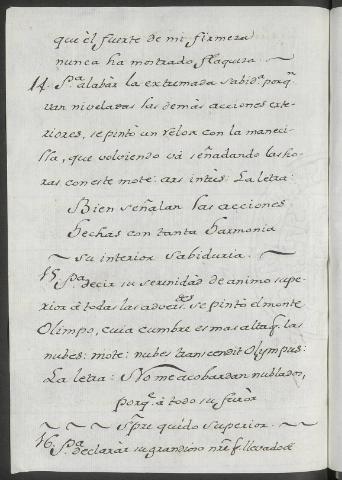 que èl fuerte de mi firmeza
nunca ha mostrado flaqueza.
14. Pª. alabàr la extremada sabidª. porq.
van niveladas las demàs acciones exte-
riores, se pintò un relox con la maneci-
lla, que volviendo và señalando las ho-
ras con este mote: ars intùs: La letra:
Bien señalan las acciones
hechas con tanta harmonia
su interior sabiduria.
15. Pª. decir su serenidàd de animo supe-
rior à todas las adversides. se pintò el monte
Olimpo, cuia cumbre es mas alta q. las
nubes: mote: nubes transcendit Olympus:
La letra: No me acobardan nublados,
porq. à todo su furòr
Spre quedo superior.
16. Pª. declaràr su grandioso nre q. llevado de